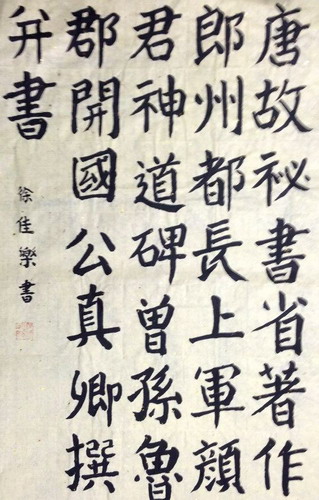 唐故祕書省著作
郎州都長上軍顔
君神道碑曾孫魯
郡開國公真卿撰
并書
徐佳樂書